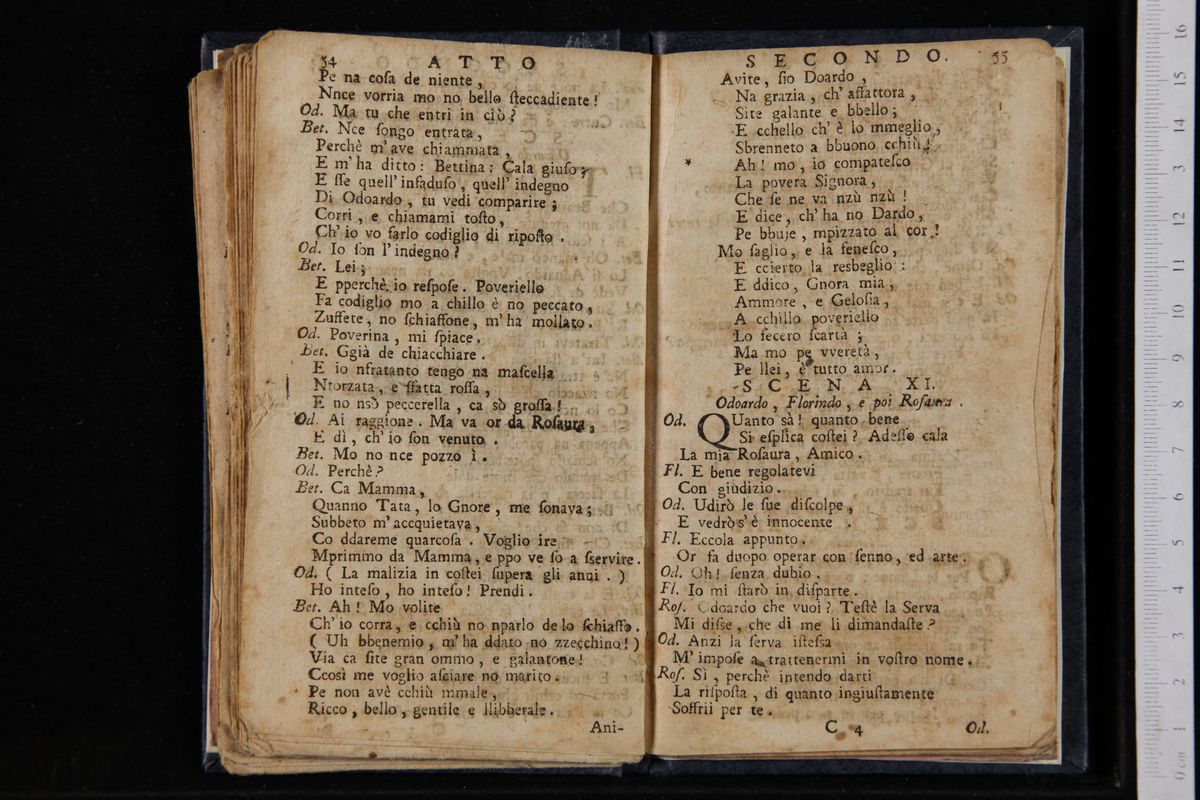 54 ATTO
Pe na coſa de niente,
Nnce vorria mo no bello ſteccadiente!
Od. Ma tu che entri in ciò?
Bet. Nce ſongo entrata,
Perchè m'ave chiammata,
E m'ha ditto: Bettina: Cala giuſo,
E ſſe quell'inſaduſo, quell'indegno
Di Odoardo, tu vedi comparire;
Corri, e chiamami toſto,
Ch'io vo farlo codiglio di ripoſto.
Od. Io ſon l'indegno?
Bet. Lei;
E pperchè, io reſpoſe. Poveriello
Fa codiglio mo a chillo è no peccato,
Zuffete, no ſchiaffone, m'ha mollato.
Od. Poverina, mi ſpiace.
Bet. Ggià de chiacchiare.
E io nfratanto tengo na maſcella
Ntorzata, e ffatta roſſa,
E no nsò peccerella, ca sò groſſa!
Od. Ai raggione. Ma va or da Roſaura,
E dì, ch'io ſon venuto.
Bet. Mo no nce pozzo ì.
Od. Perchè?
Bet. Ca Mamma,
Quanno Tata, lo Gnore, me ſonava;
Subbeto m'accquietava,
Co ddareme quarcoſa. Voglio ire
Mprimmo da Mamma, e ppo ve ſo a ſservire.
Od. (La malizia in coſtei ſupera gli anni.)
Ho inteſo, ho inteſo! Prendi.
Bet. Ah! Mo volite
Ch'io corra, e cchiù no nparlo de lo ſchiaffo.
(Uh bbenemio, m'ha ddato no zzecchino!)
Via ca ſite gran ommo, e galantone!
Ccosì me voglio aſciare no marito.
Pe non avè cchiù mmale,
Ricco, bello, gentile e llibberale.
Ani-
SECONDO. 55
Avite, ſio Doardo,
Na grazia, ch'affattora,
Site galante e bbello;
E cchello ch'è lo mmeglio,
Sbrenneto a bbuono cchiù!
* Ah! mo, io compateſco
La povera Signora,
Che ſe ne va nzù nzù!
E dice, ch'ha no Dardo,
Pe bbuje, mpizzato al cor!
Mo ſaglio, e la feneſco,
E ccierto la resbeglio:
E ddico, Gnora mia,
Ammore, e Geloſia,
A cchillo poveriello
Lo fecero ſcartà;
Ma mo pe vveretà,
Pe llei, è tutto amor.
SCENA XI.
Odoardo, Florindo, e poi Roſaura.
Od. QUanto sà! quanto bene
Si eſplica coſtei? Adeſſo cala
La mia Roſaura, Amico.
Fl. E bene regolatevi
Con giudizio.
Od. Udirò le ſue diſcolpe,
E vedrò s'è innocente.
Fl. Eccola appunto.
Or fa duopo operar con ſenno, ed arte.
Od. Oh! ſenza dubio.
Fl. Io mi ſtarò in diſparte.
Roſ. Odoardo che vuoi? Teſtè la Serva
Mi diſse, che di me li dimandaſte?
Od. Anzi la ſerva iſteſsa
M'impoſe a trattenermi in voſtro nome.
Roſ. Sì, perchè intendo darti
La riſpoſta, di quanto ingiuſtamente
Soffrii per te.
C 4 Od.
16
15
14
13
12
11
10
9
8
7
6
5
4
3
2
1
0 cm